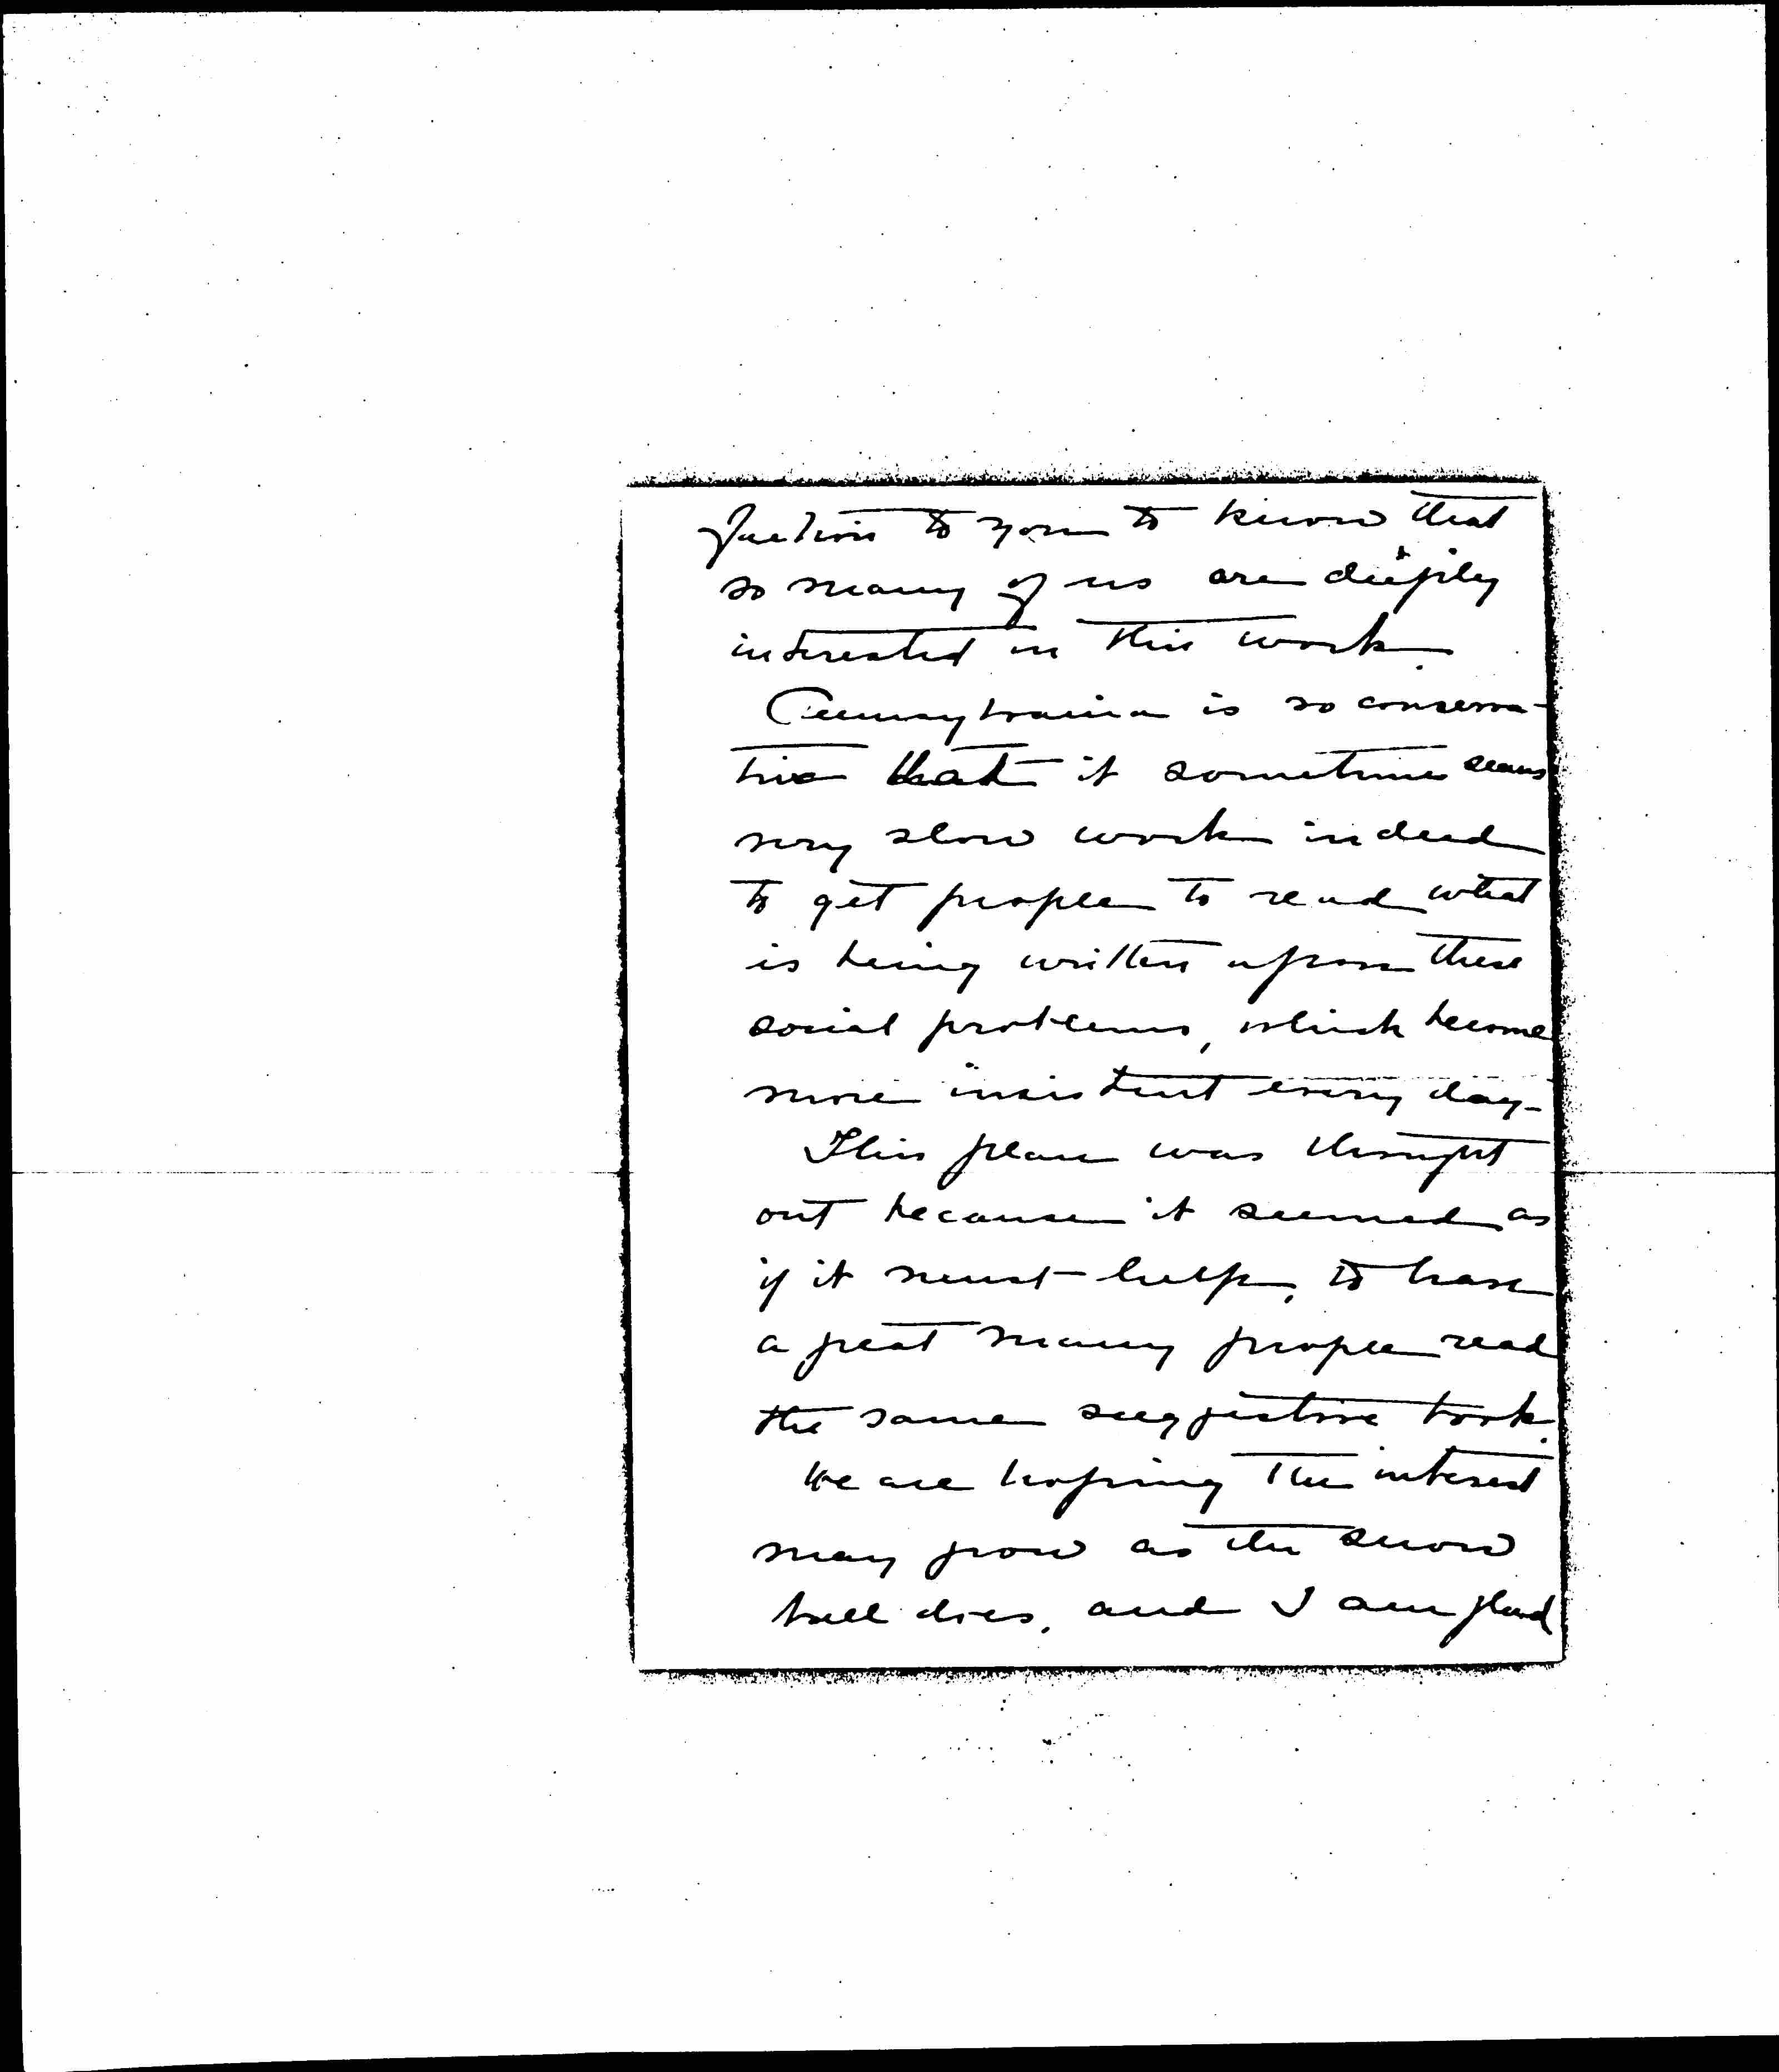 faction to you to know that
so many of us are deeply
interested in this work.
Pennsylvania is so conserva-
tive that it sometimes seems
very slow work indeed
to get people to read what
is being written upon these
social problems, which become
more insistent every day.
This plan was thought
out because it seemed as
if it must help, to have
a great many people read
the same suggestive book.
We are hoping the interest
may grow as the snow
ball does, and I am glad